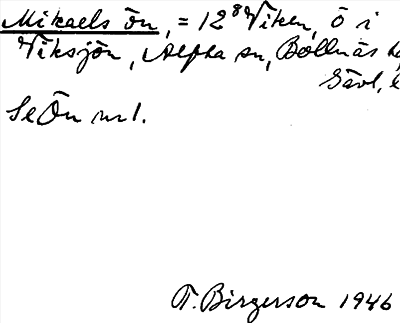 Mikaels ön, = 12⁸ Viken, ö i
Viksjön, Alfta sn, Bollnäs
Gävl.
Se Ön nr 1.
T. Birgerson 1946